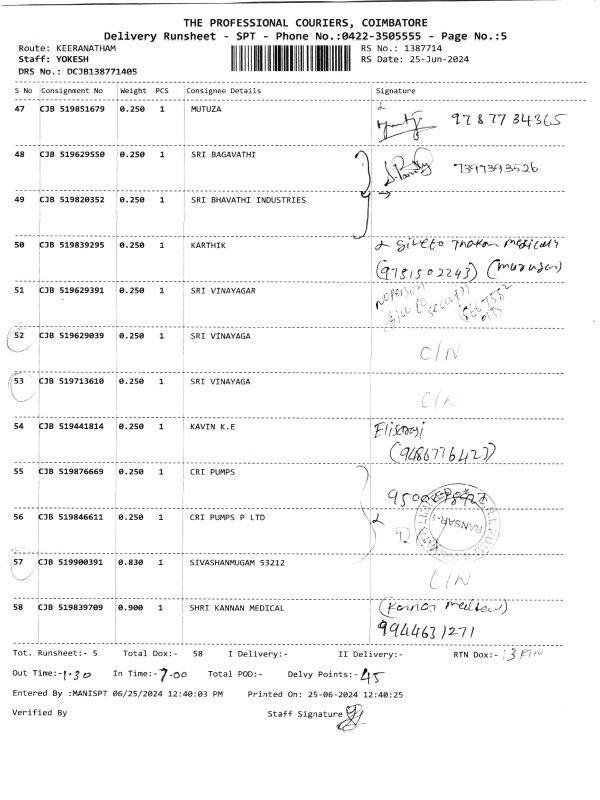 THE PROFESSIONAL COURIERS, COIMBATORE
Delivery Runsheet - SPT - Phone No.:0422-3505555 - Page No.:5
Route: KEERANATHAM RS No.: 1387714
Staff: YOKESH RS Date: 25-Jun-2024
DRS No.: DCJB138771405
S No Consignment No Weight PCS Consignee Details Signature
47 CJB 519851679 0.250 1 MUTUZA 9787734365
48 CJB 519629550 0.250 1 SRI BAGAVATHI 7397393526
49 CJB 519820352 0.250 1 SRI BHAVATHI INDUSTRIES
50 CJB 519839295 0.250 1 KARTHIK
(9751502243)
51 CJB 519629391 0.250 1 SRI VINAYAGAR
52 CJB 519629039 0.250 1 SRI VINAYAGA C/N
53 CJB 519713610 0.250 1 SRI VINAYAGA
54 CJB 519441814 0.250 1 KAVIN K.E
(9486776427)
55 CJB 519876669 0.250 1 CRI PUMPS
56 CJB 519846611 0.250 1 CRI PUMPS P LTD
57 CJB 519900391 0.830 1 SIVASHANMUGAM 53212
58 CJB 519839709 0.900 1 SHRI KANNAN MEDICAL
9944631271
Tot. Runsheet:- 5 Total Dox:- 58 I Delivery:- II Delivery:- RTN Dox:-
Out Time:-1.30 In Time:-7.00 Total POD:- Delvy Points:-45
Entered By :MANISPT 06/25/2024 12:40:03 PM Printed On: 25-06-2024 12:40:25
Verified By Staff Signature